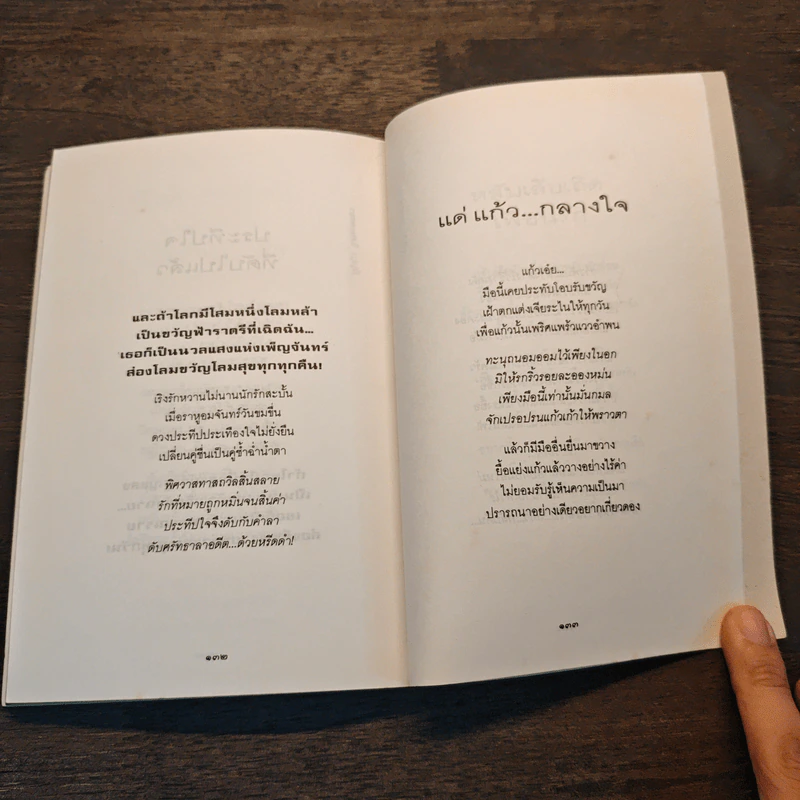 และถ้าโลกมีโสมหนึ่งโลมหล้า
เป็นขวัญฟ้าราตรีที่เฉิดฉัน...
เธอก็เป็นนวลแสงแห่งเพ็ญจันทร์
ส่องโลมขวัญโลมสุขทุกทุกคืน!
เริงรักหวานไม่นานนักรักสะบั้น
เมื่อราหูอมจันทร์วันขมขื่น
ดวงประทีปประเทืองใจไม่ยั่งยืน
เปลี่ยนคู่ชื่นเป็นคู่ช้ำฉ่ำน้ำตา
พิศวาสทาสถวิลสิ้นสลาย
รักที่หมายถูกหมิ่นจนสิ้นค่า
ประทีปใจจึงดับกับคำลา
ดับศรัทธาลาอดีต...ด้วยหรีดดำ!
๑๓๒
แด่ แก้ว...กลางใจ
แก้วเอ๋ย...
มือนี้เคยประทับโอบรับขวัญ
เฝ้าตกแต่งเจียระไนให้ทุกวัน
เพื่อแก้วนั้นเพริศแพร้วแววอำพน
ทะนุถนอมออมไว้เพียงในอก
มิให้รกริ้วรอยละอองหม่น
เพียงมือนี้เท่านั้นมั่นกมล
จักเปรอปรนแก้วเก้าให้พราวตา
แล้วก็มีมืออื่นยื่นมาขวาง
ยื้อแย่งแก้วแล้ววางอย่างไร้ค่า
ไม่ยอมรับรู้เห็นความเป็นมา
ปรารถนาอย่างเดียวอยากเกี่ยวดอง
๑๓๓